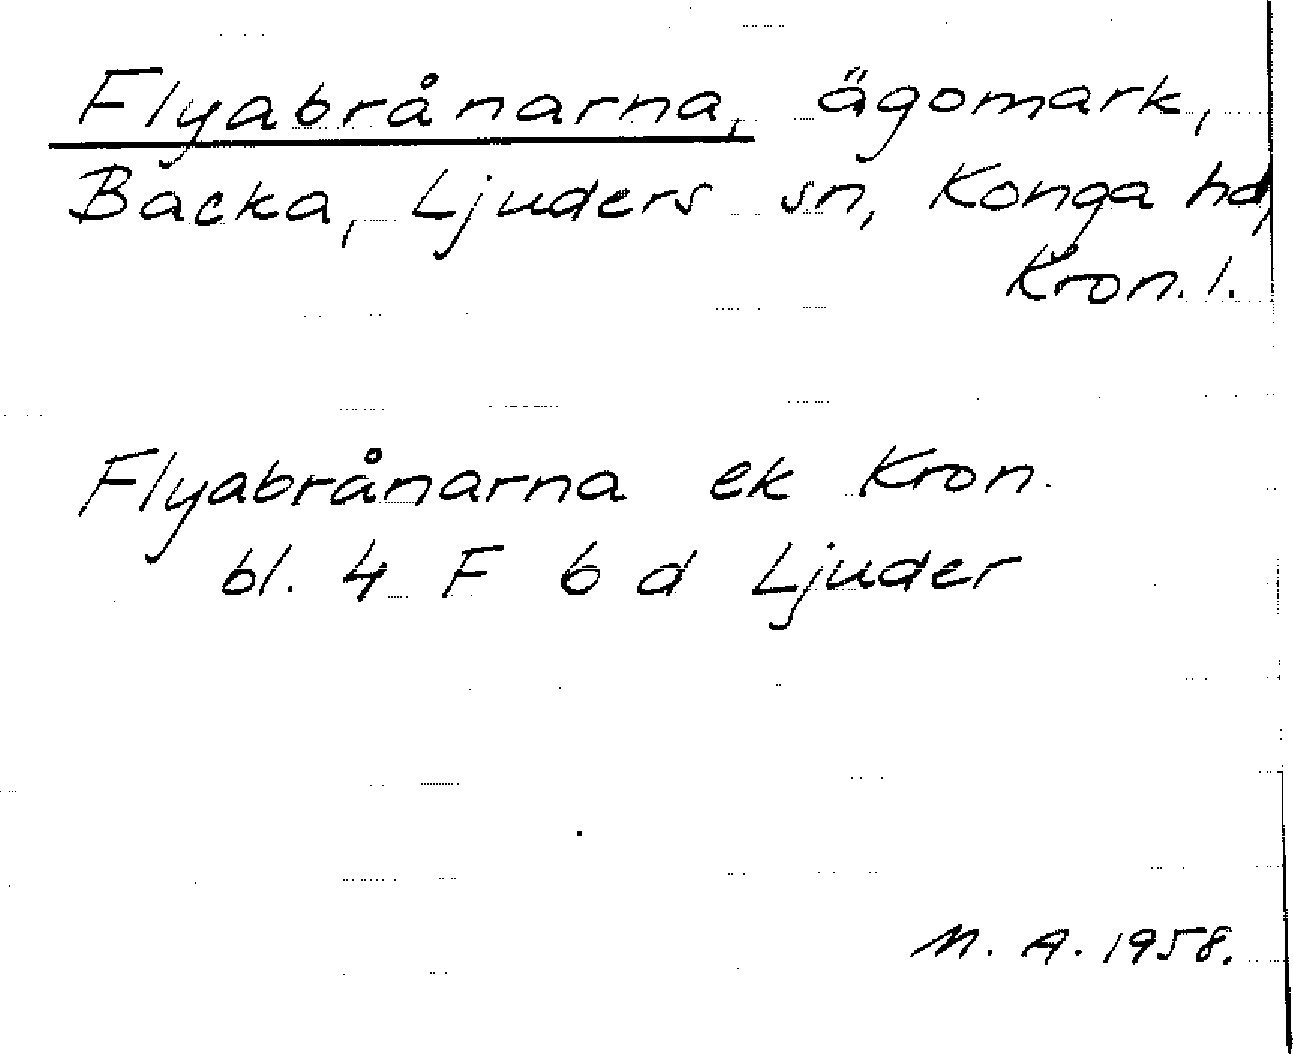 Flyabrånarna, ägomark,
Backa, Ljuders sn, Konga hd,
Kron. l.
Flyabrånarna ek Kron.
bl. 4 F 6 d Ljuder
M. A. 1958.